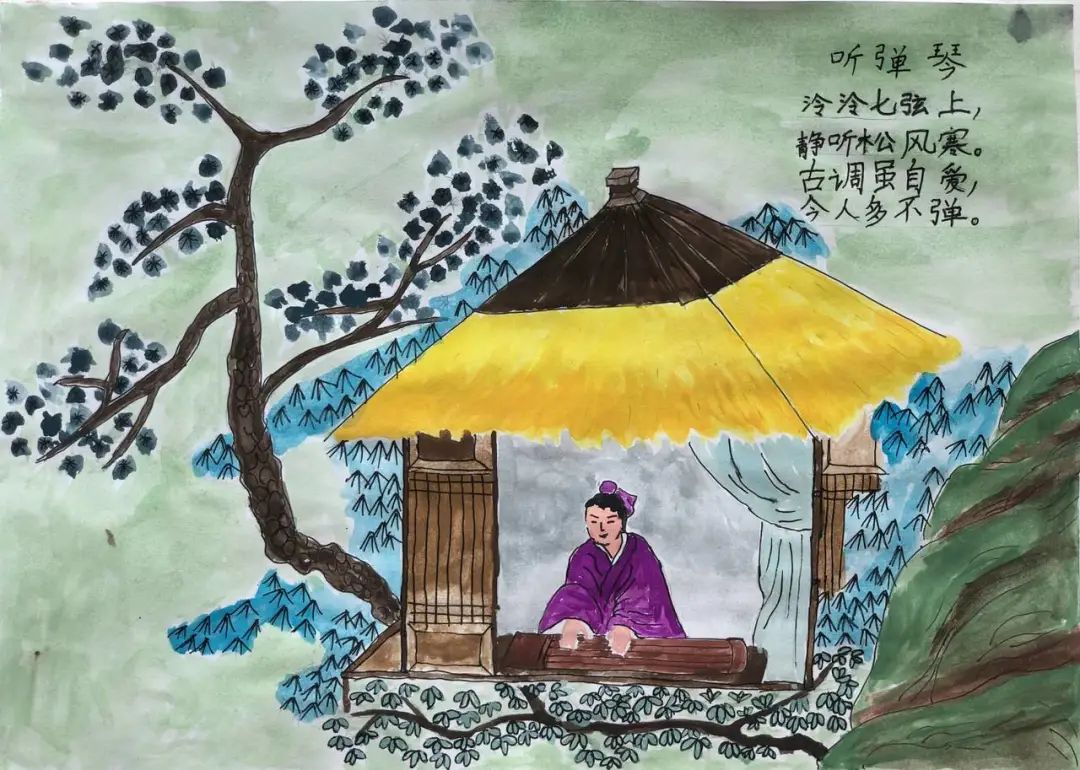 听弹琴
泠泠七弦上，
静听松风寒。
古调虽自爱，
今人多不弹。